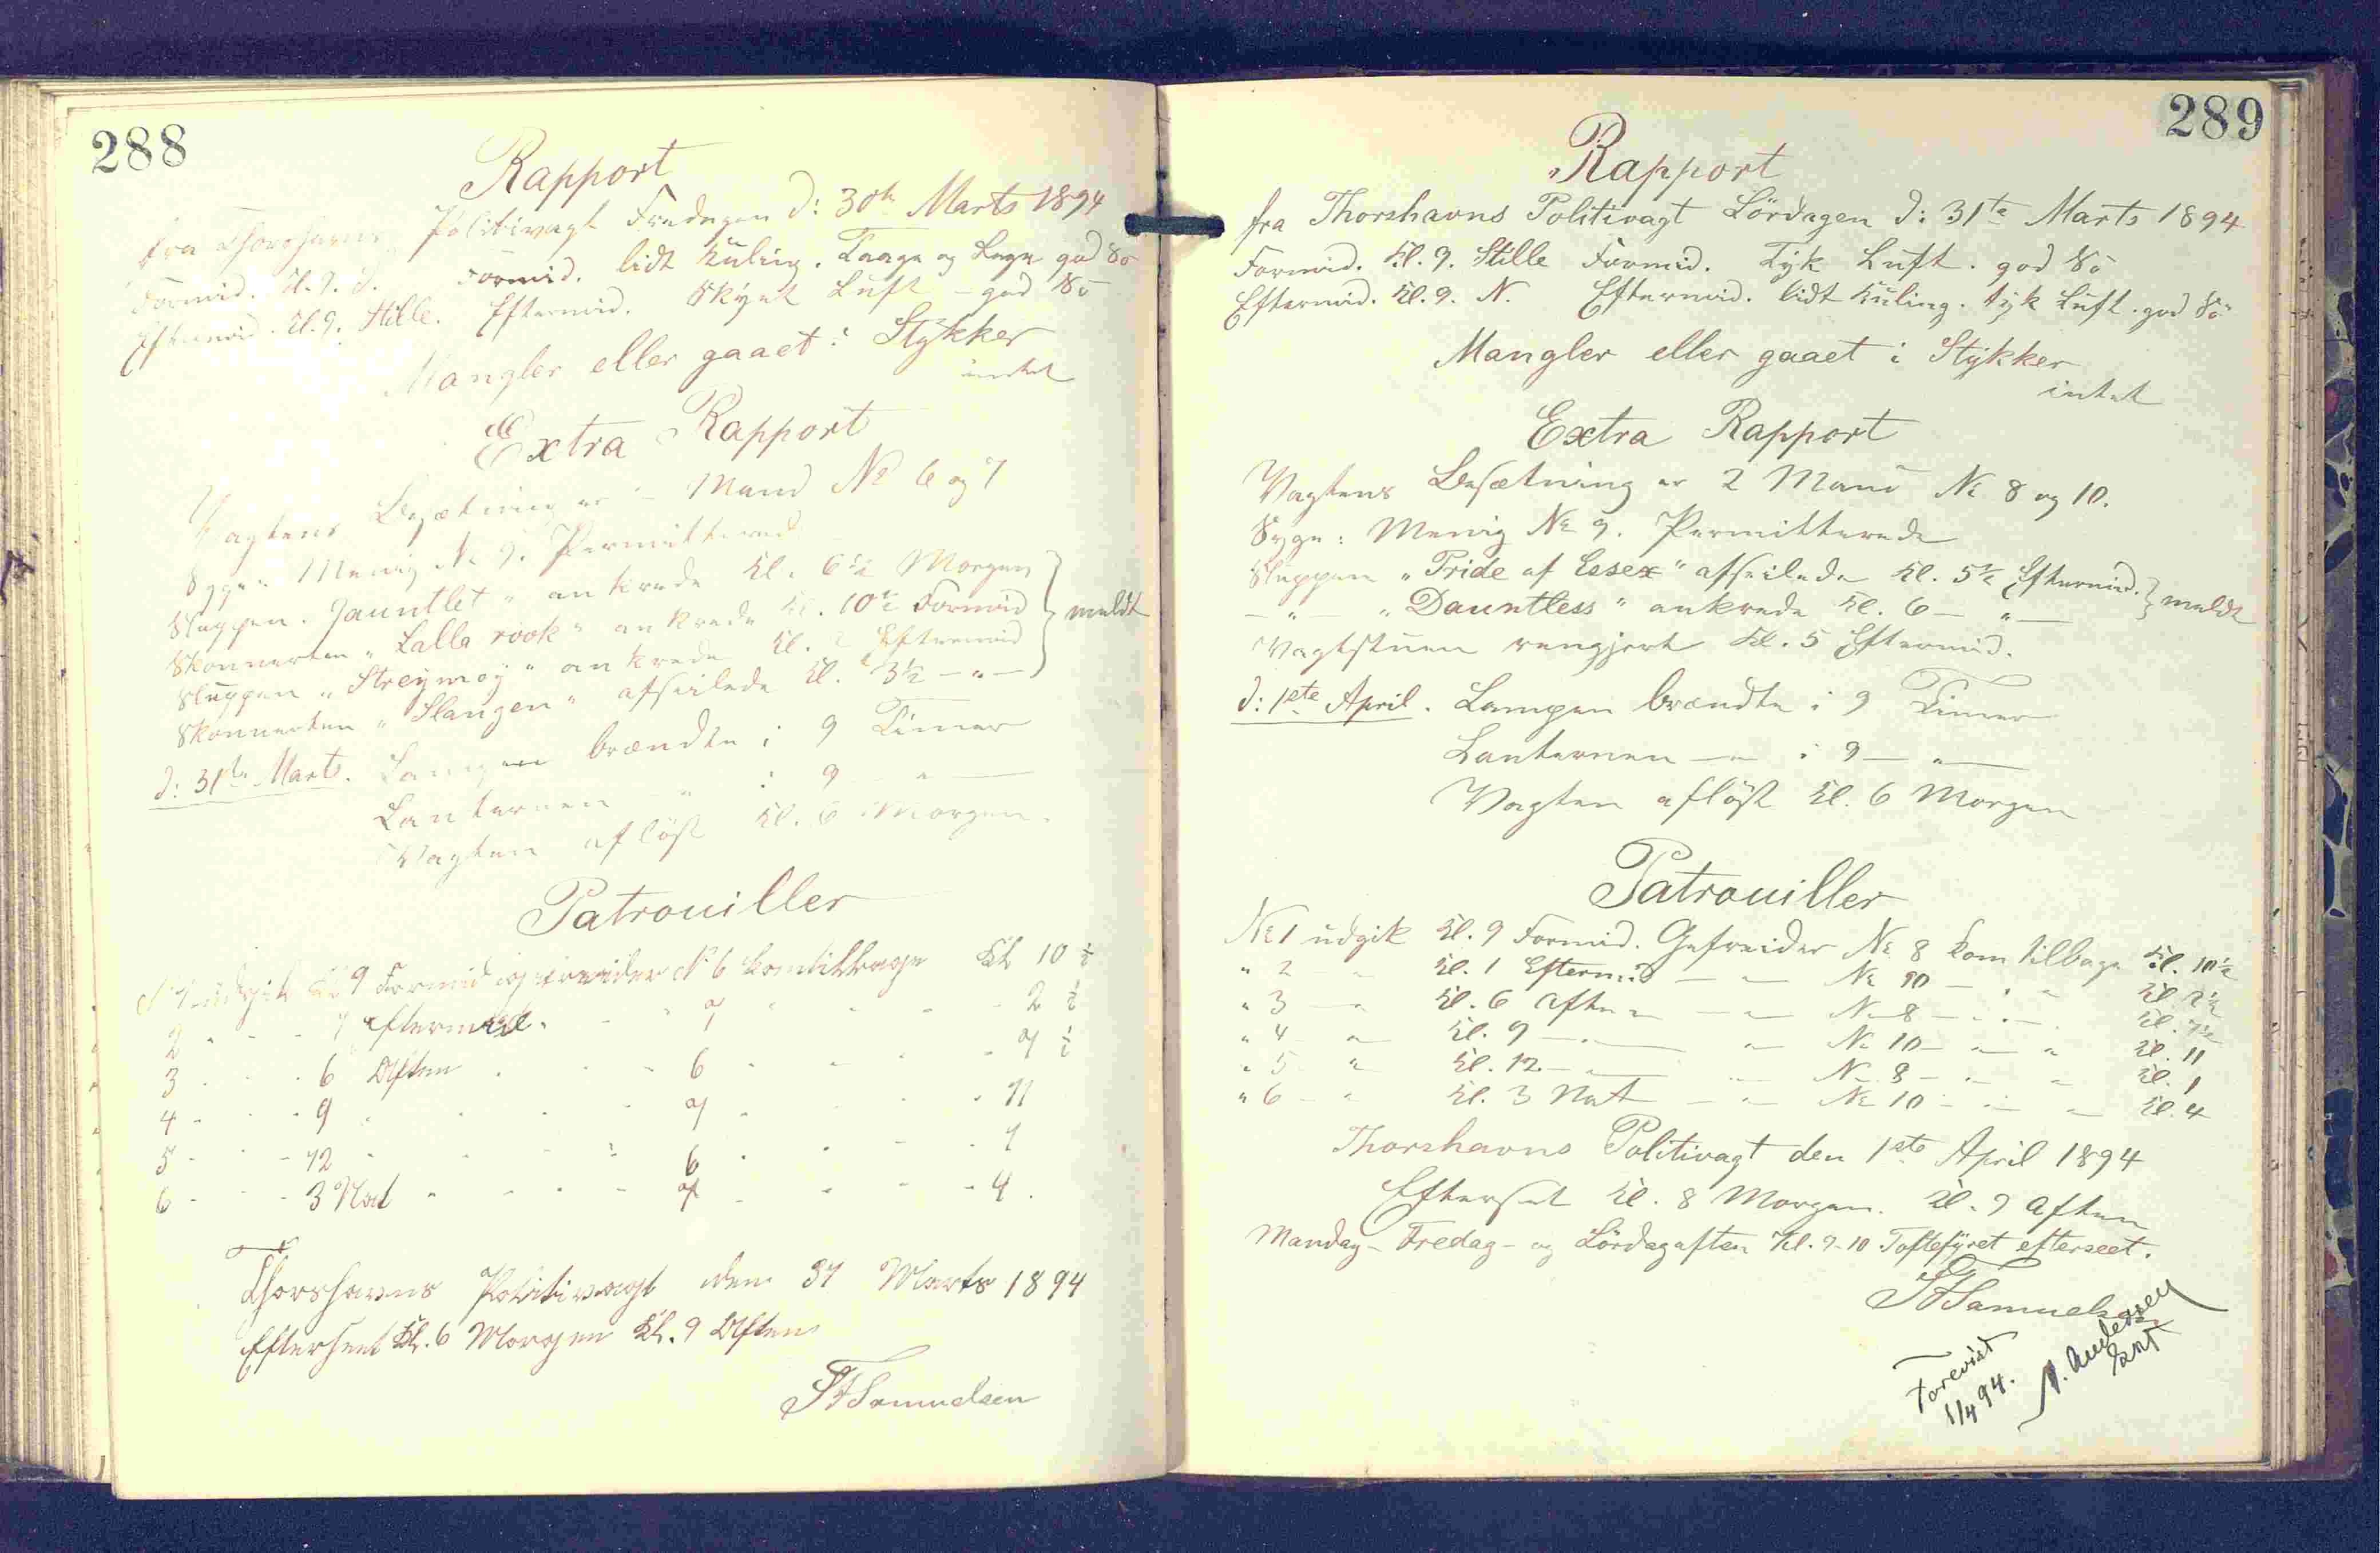 288
Rapport
fra Thorshavns Politivagt Fredagen d: 30te Marts 1894
Formid. Kl. 9. Formid. lidt Kuling. Taage og Regn god Sö
Eftermid. Kl. 9. Stille. Eftermid. Skyet Luft - god Sö
Mangler eller gaaet i Stykker
intet
Extra Rapport
Vagtens Besætning er Mand No 6 og 7
Syge: Menig No 9. Permitterede
Sluppen "Gauntlet" ankrede Kl. 6½ Morgen
Skonnerten "Lalla rook" ankrede Kl. 10½ Formid } meldt
Sluppen "Streymoy" ankrede Kl. 2 Eftermid
Skonnerten "Slangen" afseilede Kl. 3½ - " -
d: 31te Marts. Lampen brændte i 9 Timer
Lanternen " i 9 - " -
Vagten aflöst Kl. 6 Morgen.
Patrouiller
No 1 udgik Kl 9 Formid Gefreider No 6 kom tilbage Kl 10 ½
2 - - - 1 Eftermid. - - 7 " - - - 2 ½
3 - - - 6 Aften - - - 6 - - - - 7 ½
4 - - - 9 - - - - 7 - - - - 11
5 - - - 12 - - - - 6 - - - - 1
6 - - - 3 Nat - - - - 7 - - - - 4.
Thorshavns Politivagt den 31 Marts 1894
Efterseet Kl. 6 Morgen Kl. 9 Aften
Samuelsen
289
Rapport
fra Thorshavns Politivagt Lördagen d: 31te Marts 1894
Formid. Kl. 9. Stille Formid. Tyk Luft. god Sö
Eftermid. Kl. 9. N. Eftermid. lidt Kuling. tyk Luft. god Sö
Mangler eller gaaet i Stykker
intet
Extra Rapport
Vagtens Besætning er 2 Mand No 8 og 10.
Syge: Menig No 9. Permitterede
Sluppen "Pride of Essex" afseilede Kl. 5½ Eftermid. } meldt
- " - "Dauntless" ankrede Kl. 6 - " -
Vagtstuen rengjort Kl. 5 Eftermid.
d: 1ste April. Lampen brændte i 9 Timer
Lanternen - " - i 9 - " -
Vagten aflöst Kl. 6 Morgen
Patrouiller
No 1 udgik Kl. 9 Formid. Gefreider No 8 kom tilbage Kl. 10½
" 2 " Kl. 1 Eftermid - " - No 10 - " - " Kl. 2½
" 3 - " Kl. 6 Aften - " - No 8 - " - " Kl. 7½
" 4 - " Kl. 9 - " - " No 10 - " - " Kl. 11
" 5 - " Kl. 12 - " - " No 8 - " - " Kl. 1
" 6 - " Kl. 3 Nat - " - No 10 - " - " Kl. 4
Thorshavns Politivagt den 1ste April 1894
Efterset Kl. 8 Morgen. Kl. 9 Aften
Mandag- Fredag- og Lördagaften Kl. 9-10 Toftefyret efterseet.
Samuelsen
Forevist
1/4 94.
Andersen